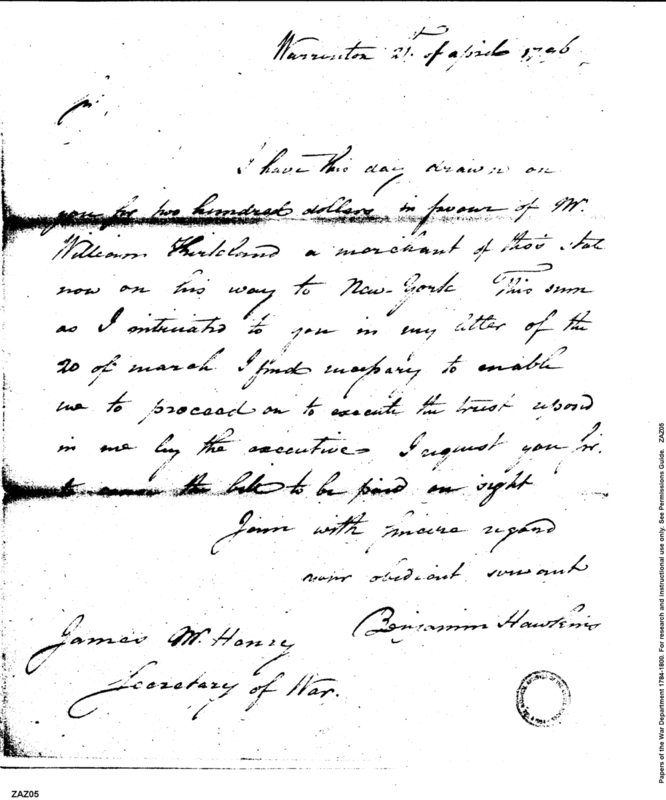 Warrenton 21st of april 1796
Sir
I have this day drawn on
you for two hundred dollars in favour of Mr.
William Kirkland a merchant of this state
now on his way to New-York This sum
as I intimated to you in my letter of the
20 of march I find necessary to enable
me to proceed on to execute the trust reposd
in me by the executive I request you Sir.
to cause the bill to be paid on sight
I am with sincere regard
your obedient servant
Benjamin Hawkins
James McHenry
Secretary of War.
Papers of the War Department 1784-1800. For research and instructional use only. See Permissions Guide. ZAZ05
ZAZ05